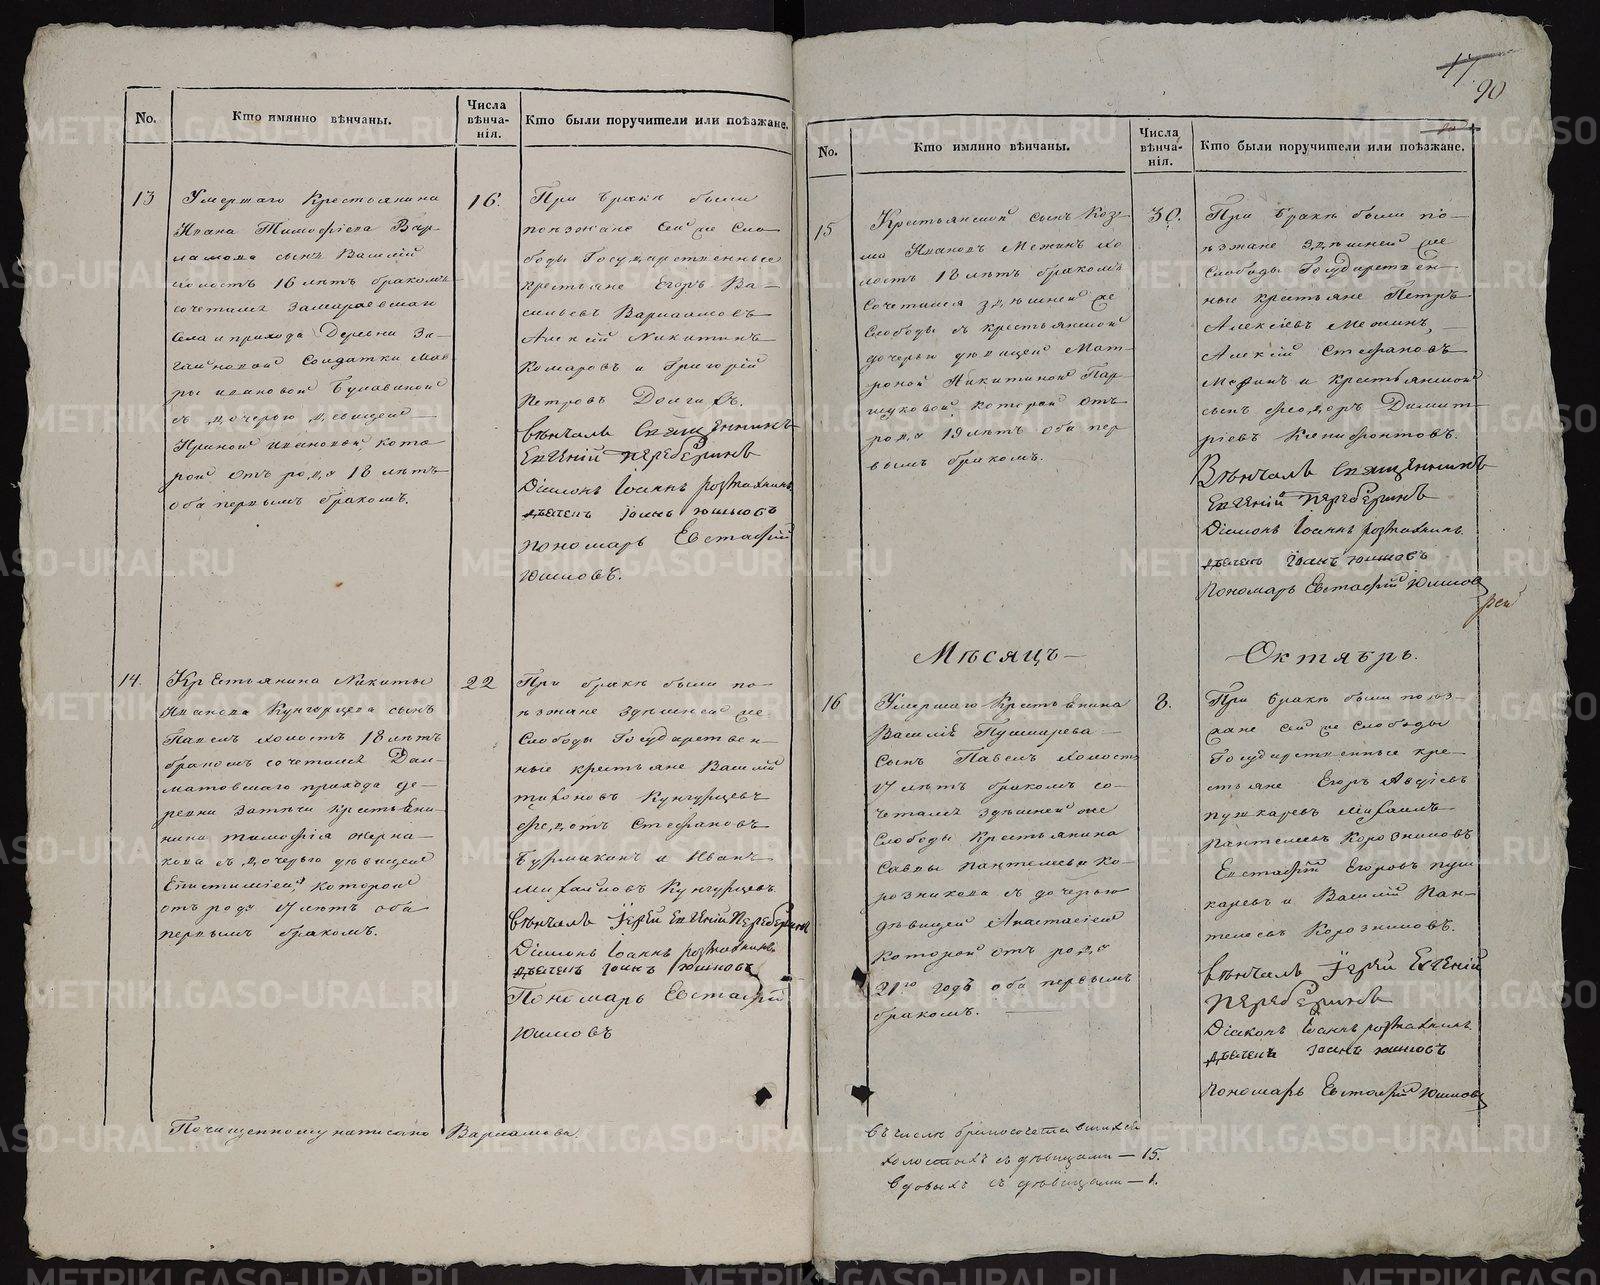 No.
Кто имянно вѣнчаны.
Числа
вѣнча-
нія.
Кто были поручители или поѣзжане.
13
Умершаго Крестьянина
Ивана Тимофѣева Вар-
ламова сынъ Василій
холостъ 16 лѣтъ бракомъ
сочетался Замараевскаго
села и прихода Деревни
Солдатки Мав
ры Ивановой
съ дочерью дѣвицею
Ириной Ивановой, кото
рой отъ рода 18 лѣтъ
оба первымъ бракомъ.
16.
При бракѣ были
поѣзжане сей же Сло
боды Государственные
крестьяне Егоръ Ва-
сильевъ Варламовъ
Алексій Никитинъ
Комаровъ и Григорій
Петровъ Долгихъ.
Вѣнчалъ Священникъ
Евгеній Переберинъ
Діаконъ Іоаннъ
дьячекъ Іоаннъ Юшковъ
Пономарь Евстафій
Юшковъ.
14.
Крестьянина Никиты
Иванова Кунгурцева сынъ
Павелъ холостъ 18 лѣтъ
бракомъ сочетался Дал-
матовскаго прихода де-
ревни Затечи крестьяни-
нина Тимофѣя Жерна-
кова съ дочерью дѣвицею
Епистиміею, которой
отъ роду 17 лѣтъ оба
первымъ бракомъ.
22
При бракѣ были по-
ѣзжане здѣшней же
Слободы Государствен-
ные крестьяне Василій
Тихоновъ Кунгурцевъ
Федотъ Стефановъ
Бурмакинъ и Иванъ
Михайловъ Кунгурцевъ
Вѣнчалъ Іерей Евгеній Переберинъ
Діаконъ Іоаннъ
дьячекъ Іоаннъ Юшковъ
Пономарь Евстафій
Юшковъ
По чищенному написано Варламова.
17
90
No.
Кто имянно вѣнчаны.
Числа
вѣнча-
нія.
Кто были поручители или поѣзжане.
15
Крестьянской сынъ Козь-
ма Ивановъ Межинъ хо
лостъ 18 лѣтъ бракомъ
сочетался здѣшней же
Слободы съ крестьянской
дочерью дѣвицей Мат-
роной Никитиной Пар-
шуковой, которой отъ
рода 19 лѣтъ оба пер
вымъ бракомъ.
30.
При бракѣ были по-
ѣзжане здѣшней же
Слободы Государствен-
ные крестьяне Петръ
Алексіевъ Межинъ,
Алексій Стефановъ
Межинъ и крестьянской
сынъ Феодоръ Димит-
ріевъ Ксенофонтовъ.
Вѣнчалъ Священникъ
Евгеній Переберинъ
Діаконъ Іоаннъ
дьячекъ Іоаннъ Юшковъ
Пономарь Евстафій Юшковъ
рей
Мѣсяцъ — Октябрь.
16
Умершаго Крестьянина
Василія Пушкарева
сынъ Павелъ холостъ
17 лѣтъ бракомъ со-
четался здѣшней же
Слободы Крестьянина
Саввы Пантелеева Ко-
розникова съ дочерью
дѣвицей Анастасіей
которой отъ рода
21го годъ оба первымъ
бракомъ.
8.
При бракѣ были поѣз-
жане сей же Слободы
Государственные кре-
стьяне Егоръ Авдіевъ
Пушкаревъ Михаилъ
Пантелеевъ Корозниковъ
Евстафій Егоровъ Пуш
каревъ и Василій Пан-
телеевъ Корозниковъ.
Вѣнчалъ Іерей Евгеній
Переберинъ
Діаконъ Іоаннъ
дьячекъ Іоаннъ Юшковъ
Пономарь Евстафій Юшковъ
Въ числѣ бракосочетавшихся
холостыхъ съ дѣвицами — 15.
Вдовыхъ съ дѣвицами — 1.
METRIKI.GASO-URAL.RU